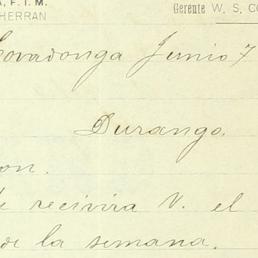 A, F. I. M.
HERRAN
Gerente W. S. CO
Covadonga Junio 7
Durango.
on.
le recivira V. el
de la semana.